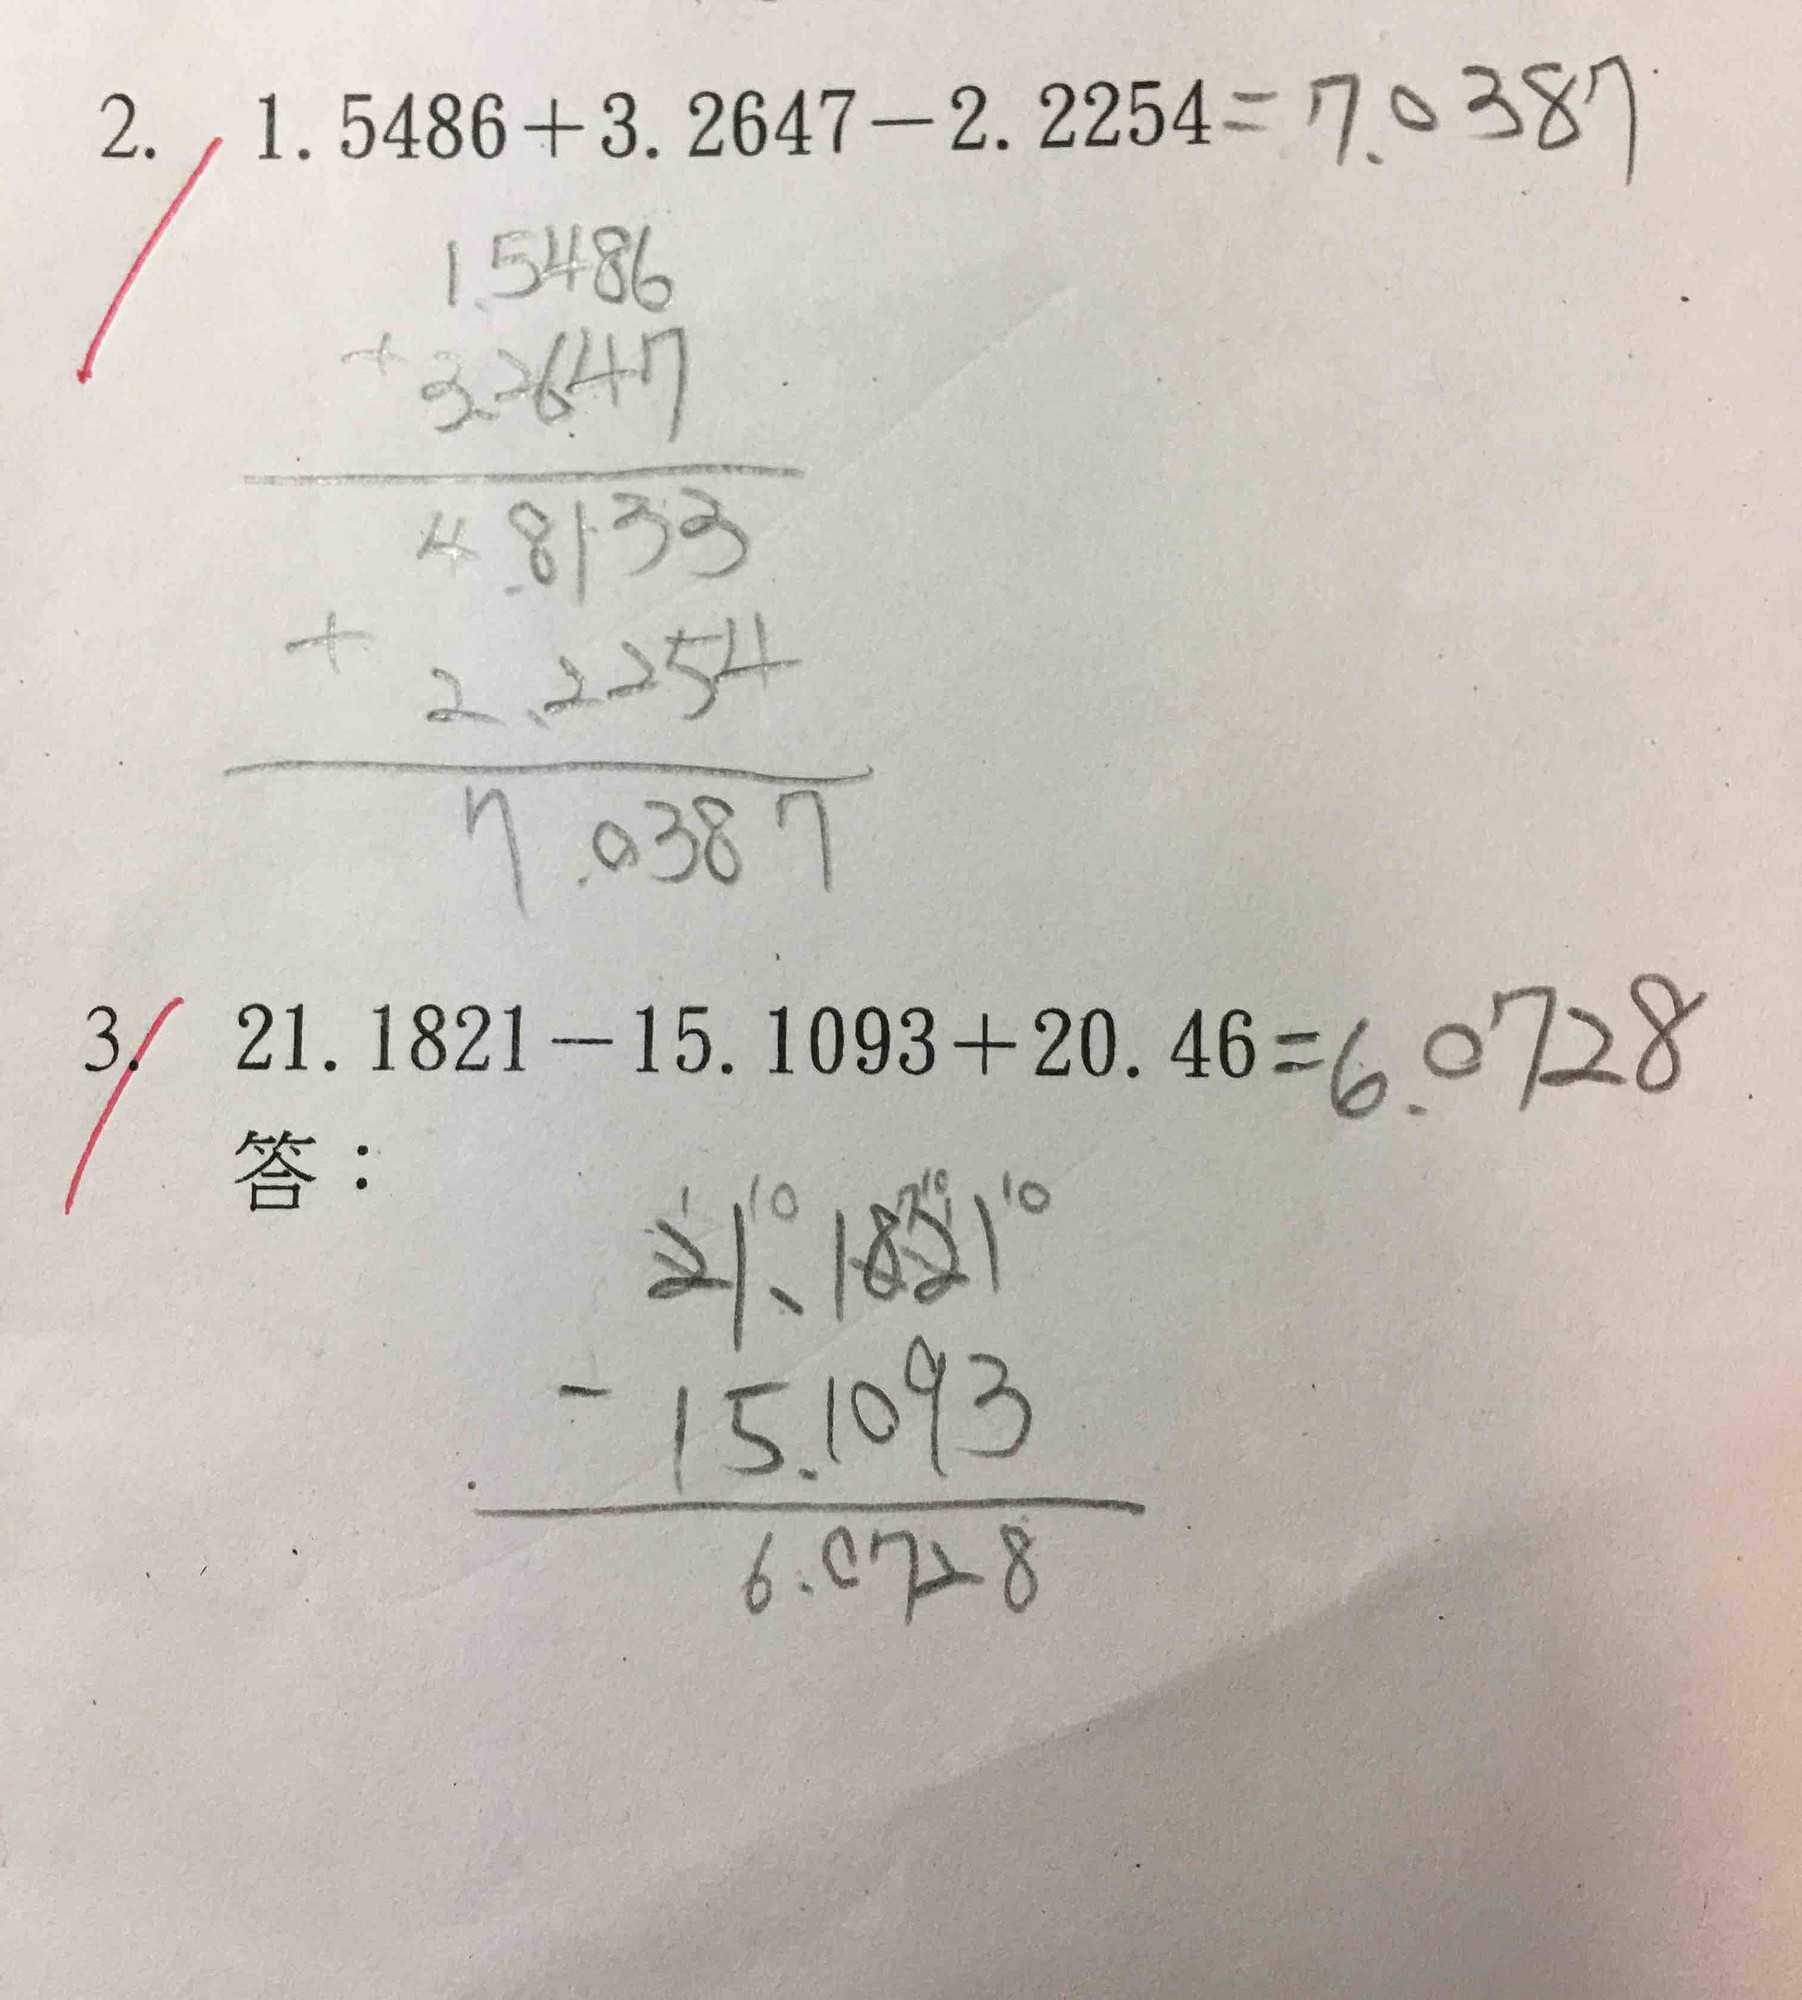 2. 1.5486+3.2647-2.2254=7.0387
1.5486
+3.2647
4.8133
+2.2254
7.0387
3. 21.1821-15.1093+20.46=6.0728
答：
1 10 7 10 10
21.1821
-15.1093
6.0728